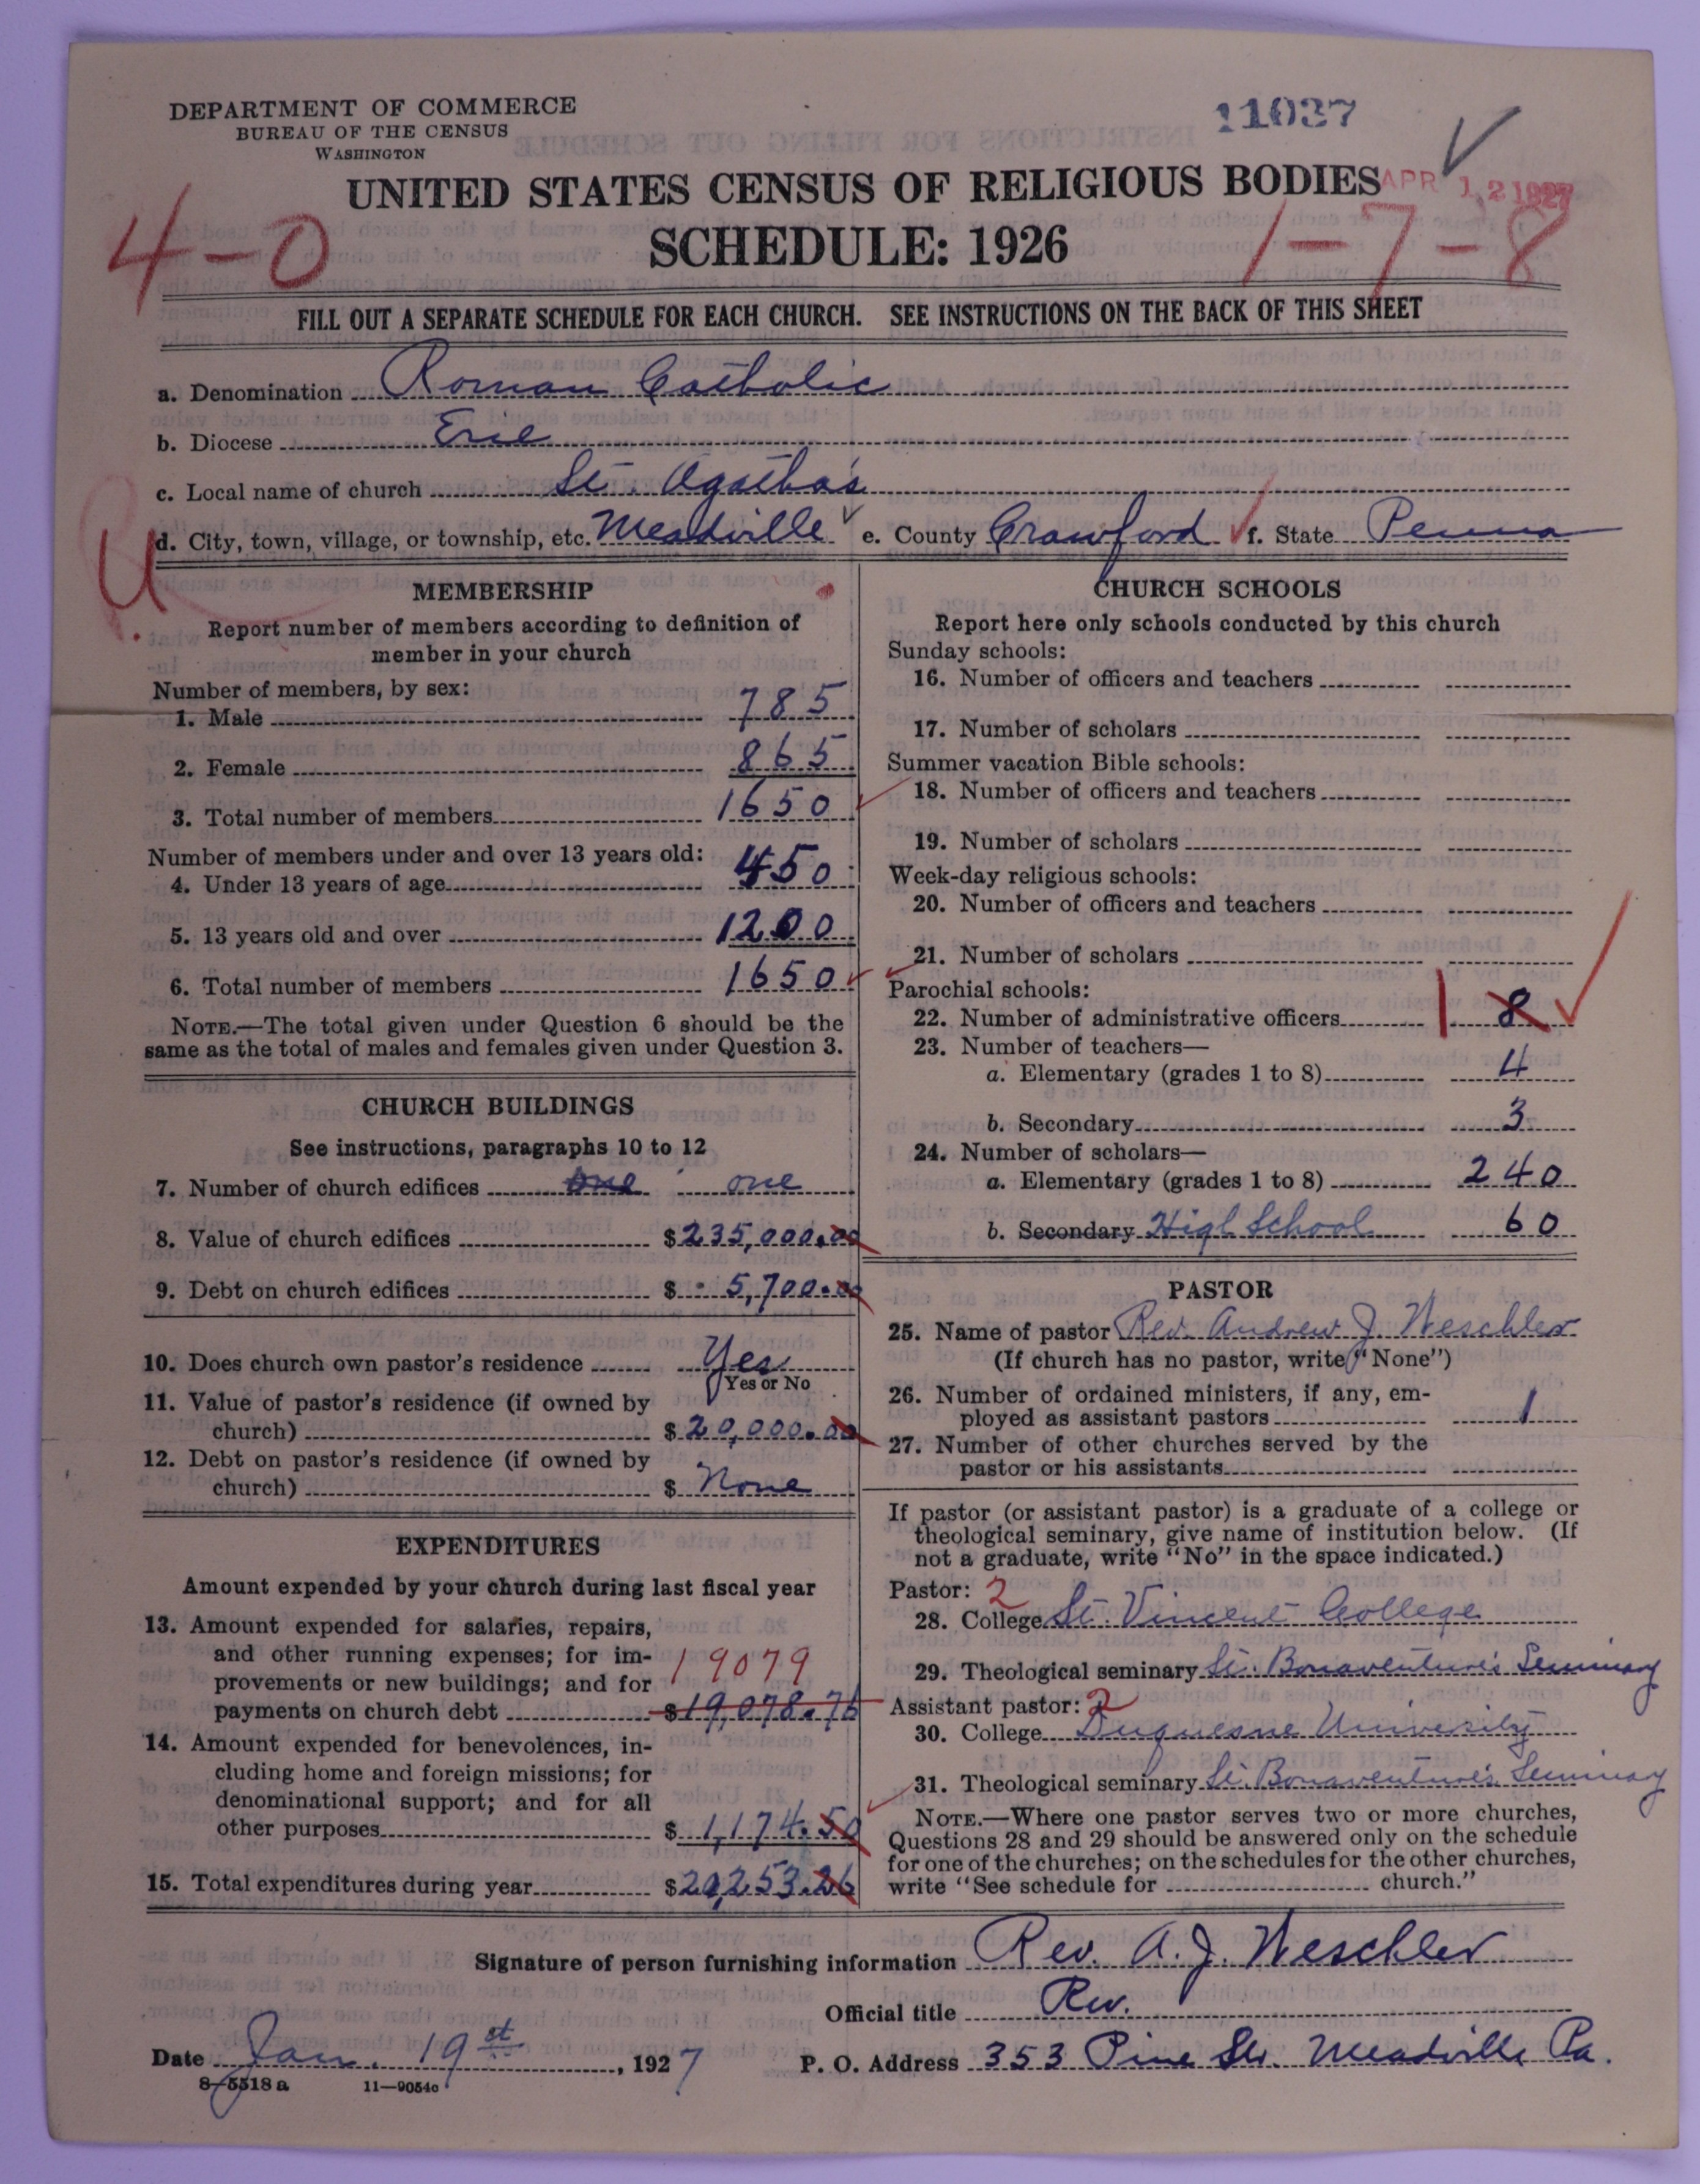 DEPARTMENT OF COMMERCE
BUREAU OF THE CENSUS
WASHINGTON
11037
UNITED STATES CENSUS OF RELIGIOUS BODIES
APR 12 1927
4-0
SCHEDULE: 1926
1-7-8
FILL OUT A SEPARATE SCHEDULE FOR EACH CHURCH. SEE INSTRUCTIONS ON THE BACK OF THIS SHEET
a. Denomination Roman Catholic
b. Diocese Erie
c. Local name of church St. Agatha's
U
d. City, town, village, or township, etc. Meadville e. County Crawford f. State Penna
MEMBERSHIP
Report number of members according to definition of
member in your church
Number of members, by sex:
1. Male 785
2. Female 865
3. Total number of members 1650
Number of members under and over 13 years old:
4. Under 13 years of age 450
5. 13 years old and over 1200
6. Total number of members 1650
NOTE.—The total given under Question 6 should be the
same as the total of males and females given under Question 3.
CHURCH BUILDINGS
See instructions, paragraphs 10 to 12
7. Number of church edifices One one
8. Value of church edifices $235,000.00
9. Debt on church edifices $ 5,700.00
10. Does church own pastor's residence Yes
Yes or No
11. Value of pastor's residence (if owned by
church) $20,000.00
12. Debt on pastor's residence (if owned by
church) $ None
EXPENDITURES
Amount expended by your church during last fiscal year
13. Amount expended for salaries, repairs,
and other running expenses; for im-
provements or new buildings; and for 19079
payments on church debt $19,078.76
14. Amount expended for benevolences, in-
cluding home and foreign missions; for
denominational support; and for all
other purposes $1,174.50
15. Total expenditures during year $20,253.26
CHURCH SCHOOLS
Report here only schools conducted by this church
Sunday schools:
16. Number of officers and teachers
17. Number of scholars
Summer vacation Bible schools:
18. Number of officers and teachers
19. Number of scholars
Week-day religious schools:
20. Number of officers and teachers
21. Number of scholars
Parochial schools:
22. Number of administrative officers 1 8
23. Number of teachers—
a. Elementary (grades 1 to 8) 4
b. Secondary 3
24. Number of scholars—
a. Elementary (grades 1 to 8) 240
b. Secondary High School 60
PASTOR
25. Name of pastor Rev. Andrew J. Weschler
(If church has no pastor, write "None")
26. Number of ordained ministers, if any, em-
ployed as assistant pastors 1
27. Number of other churches served by the
pastor or his assistants
If pastor (or assistant pastor) is a graduate of a college or
theological seminary, give name of institution below. (If
not a graduate, write "No" in the space indicated.)
Pastor: 2
28. College St Vincent College
29. Theological seminary St. Bonaventure's Seminary
Assistant pastor: 2
30. College Duquesne University
31. Theological seminary St. Bonaventure's Seminary
NOTE.—Where one pastor serves two or more churches,
Questions 28 and 29 should be answered only on the schedule
for one of the churches; on the schedules for the other churches,
write "See schedule for church."
Signature of person furnishing information Rev. A. J. Weschler
Official title Rev.
Date Jan. 19st, 1927 P. O. Address 353 Pine St. Meadville Pa.
8-5518 a 11—9054c